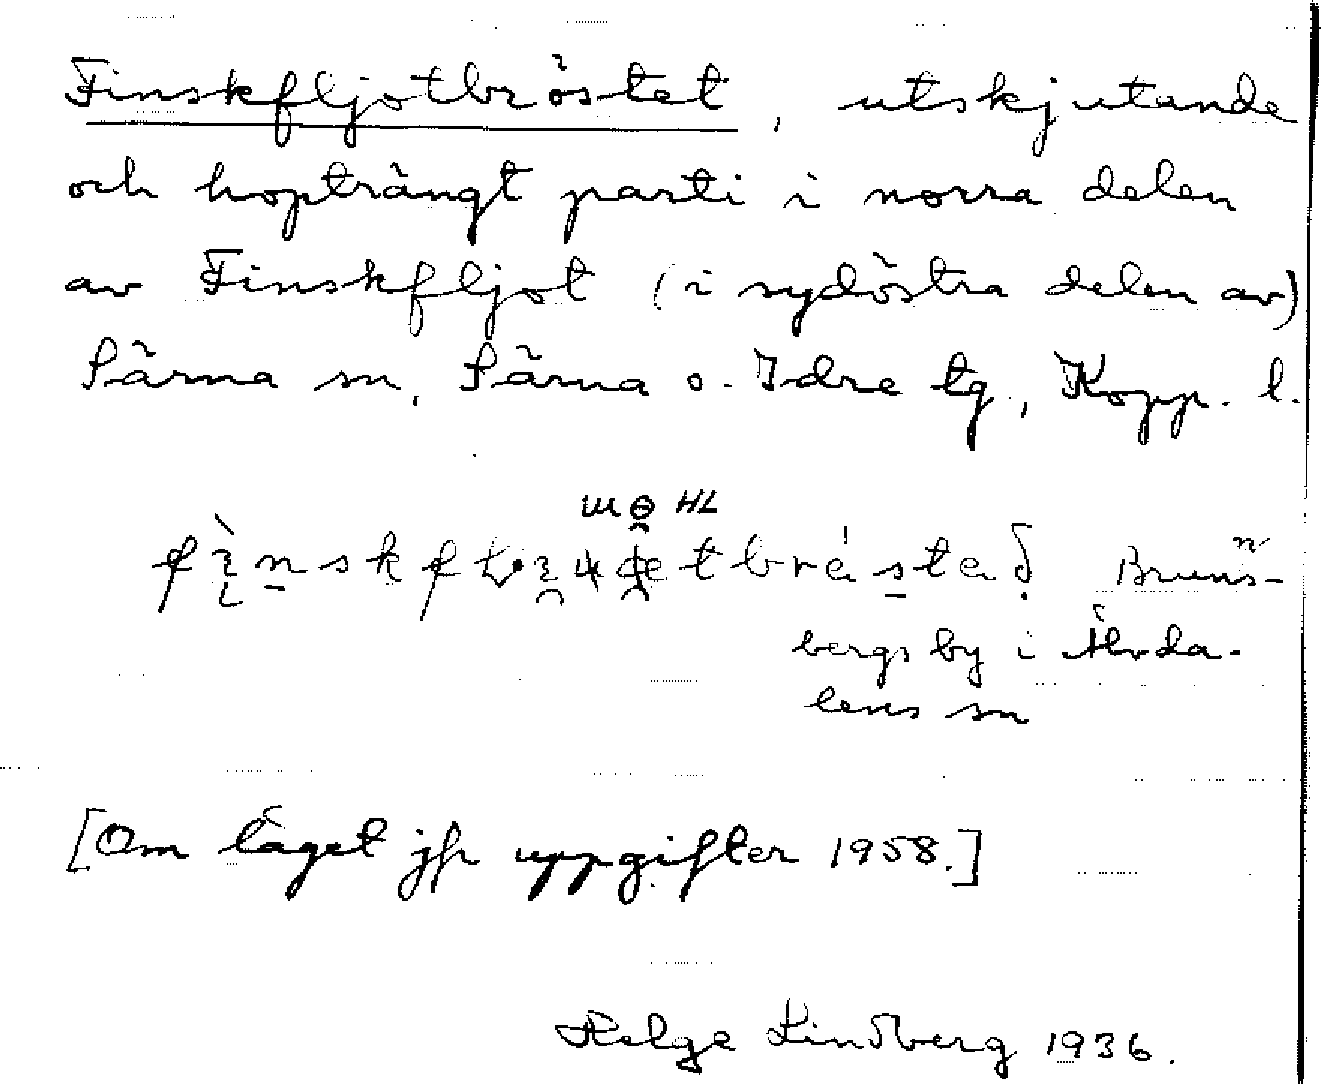 Finskfljotbröstet, utskjutande
och hopträngt parti i norra delen
av Finskfljot (i sydöstra delen av)
Särna sn, Särna o. Idre tg, Kopp. l.
HL
Bruns-
bergs by i Älvda-
lens sn
[Om läget jfr uppgifter 1958.]
Helge Lindberg 1936.